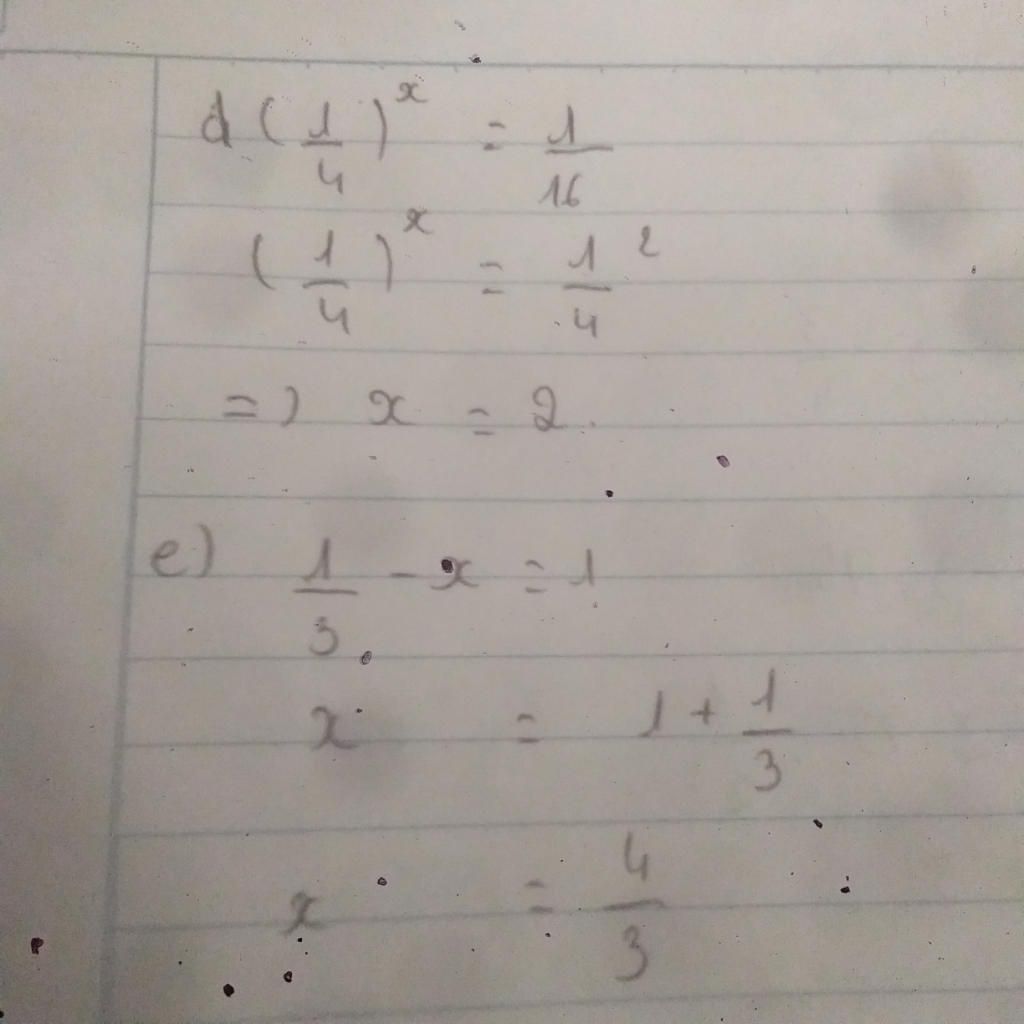 d (1/4)^x = 1/16
(1/4)^x = 1/4 ^2
=) x = 2.
e) 1/3 - x = 1
x = 1 + 1/3
x = 4/3